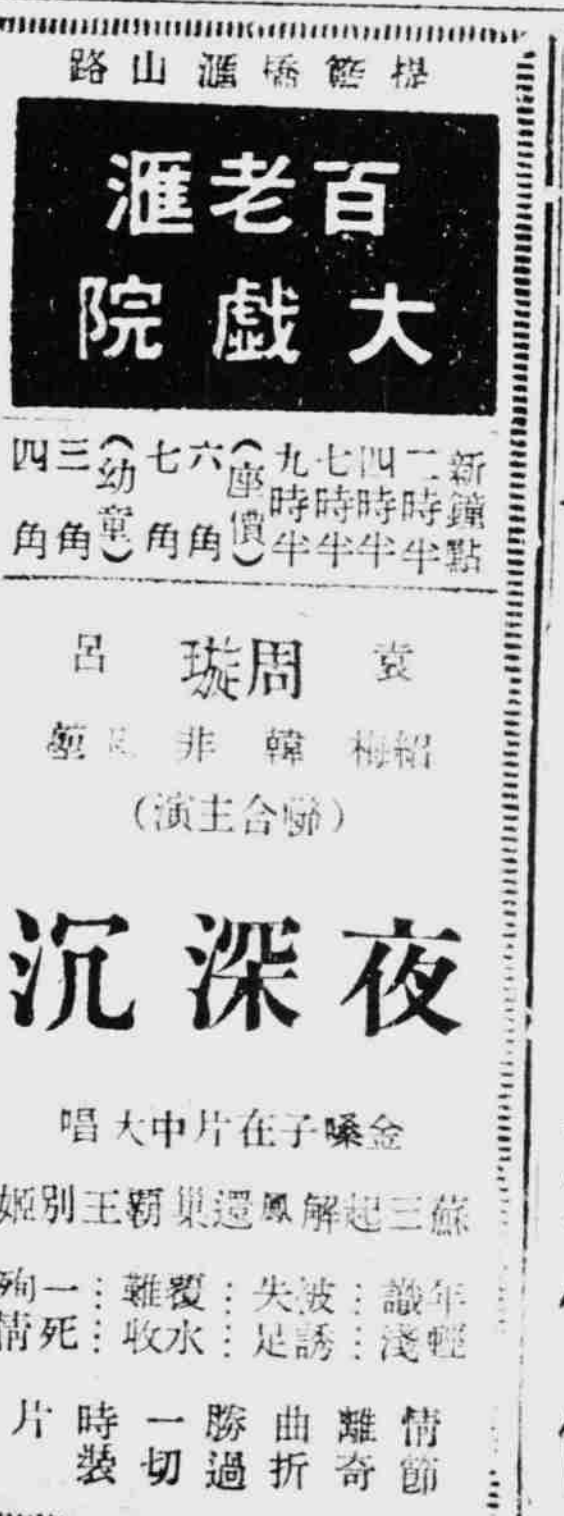 提籃橋滙山路
百老滙
大戲院
新鐘點
二時半
四時半
七時半
九時半
（座價）
六角
七角
（幼童）
三角
四角
袁紹梅
周璇
韓非
呂
（聯合主演）
夜深沉
金嗓子在片中大唱
蘇三起解鳳還巢霸王別姬
年輕識淺：被誘失足：覆水難收：一死殉情
情節離奇曲折勝過一切時裝片